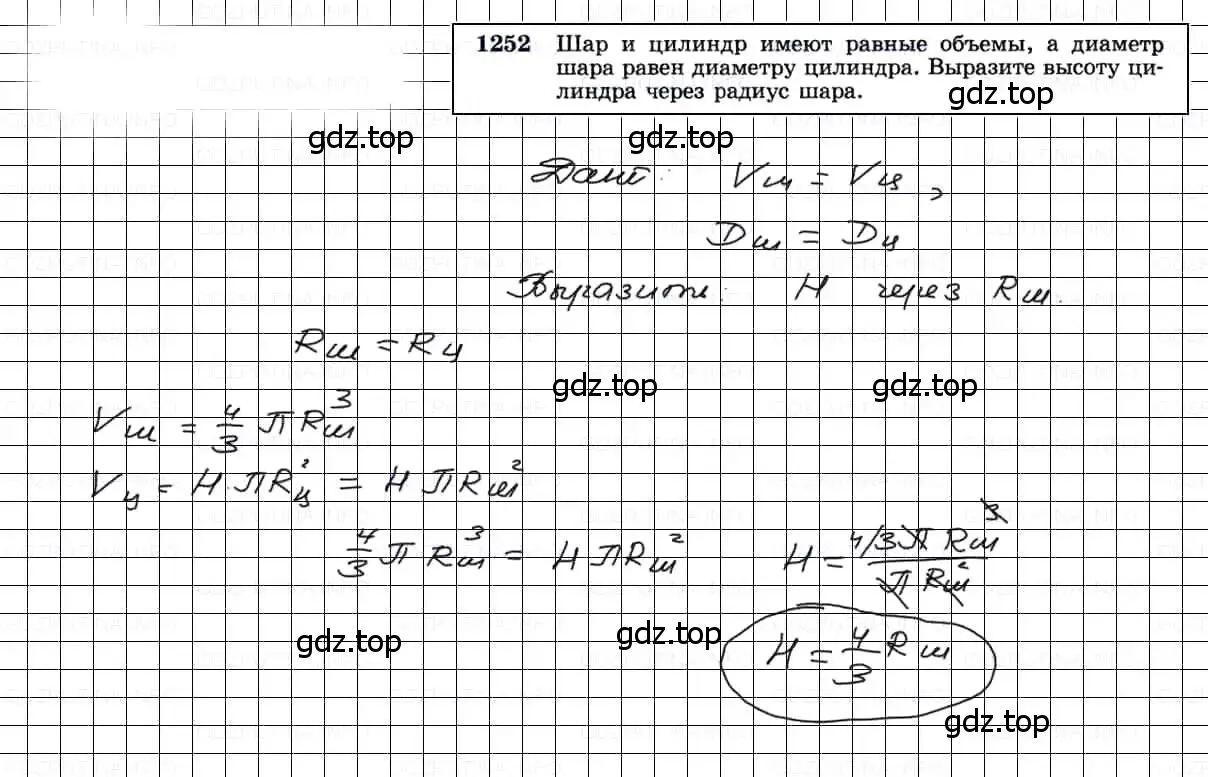 1252 Шар и цилиндр имеют равные объемы, а диаметр
шара равен диаметру цилиндра. Выразите высоту ци-
линдра через радиус шара.
gdz.top
gdz.top gdz.top
Дано: Vш = Vц,
Dш = Dц.
Выразить: H через Rш.
Rш = Rц
gdz.top gdz.top
Vш = 4/3 πRш³
Vц = H·πRц² = H πRш²
4/3 π Rш³ = H πRш² H = 4/3 π Rш³ / π Rш²
gdz.top gdz.top
H = 4/3 Rш
gdz.top